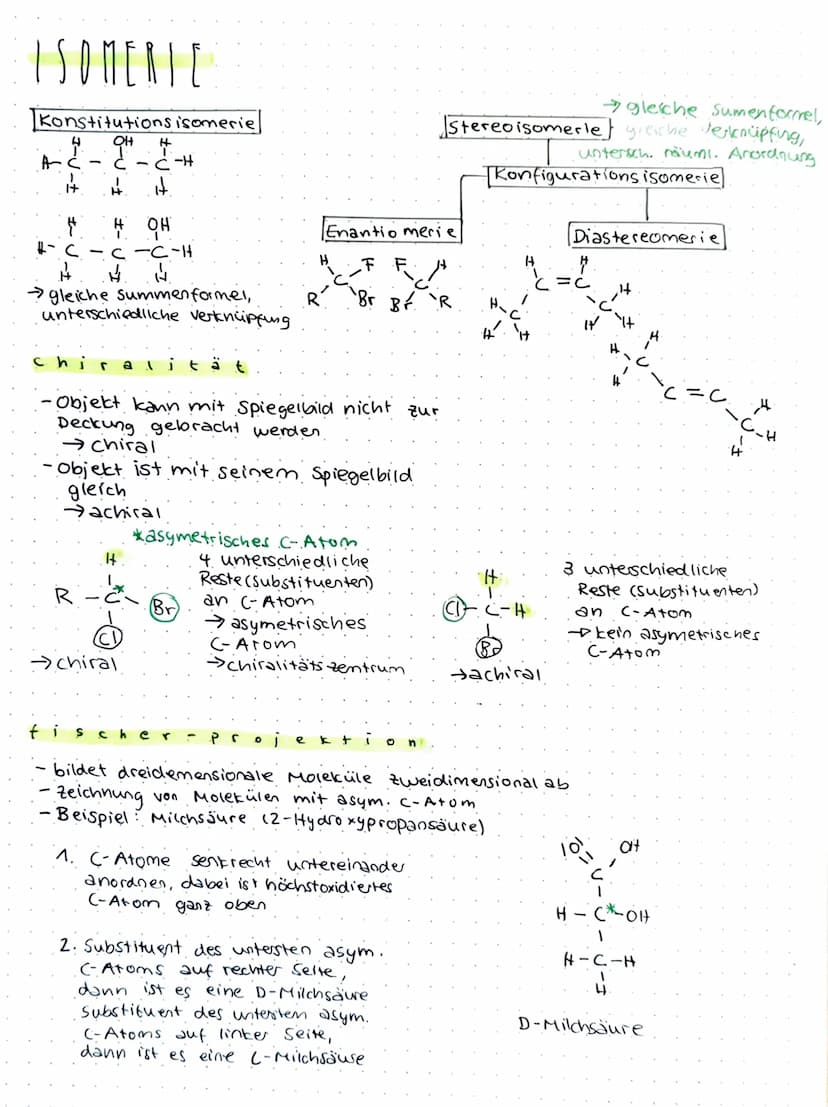 ISOMERIE
Konstitutionsisomerie
H OH H
H-C - C - C-H
H H H
H H OH
H-C - C -C-H
H H H
→ gleiche Summenformel,
unterschiedliche Verknüpfung
→ gleiche Sumenformel,
Stereoisomerie gleiche Verknüpfung,
untersch. räuml. Anordnung
Konfigurationsisomerie
Enantiomerie
H F F H
C C
R Br Br R
Diastereomerie
H H
C = C
H H
C C
H H H H
H H
C
H C = C H
C-H
H
Chiralität
- Objekt kann mit Spiegelbild nicht zur
Deckung gebracht werden
→ chiral
- Objekt ist mit seinem Spiegelbild
gleich
→ achiral
*asymetrisches C-Atom
H
R - C* - Br
Cl
→ chiral
4 unterschiedliche
Reste (Substituenten)
an C-Atom
→ asymetrisches
C-Atom
→ Chiralitätszentrum
H
Cl - C - H
Br
→ achiral
3 unterschiedliche
Reste (Substituenten)
an C-Atom
→ kein asymetrisches
C-Atom
fischer-projektion
- bildet dreidemensionale Moleküle zweidimensional ab
- Zeichnung von Molekülen mit asym. C-Atom
- Beispiel: Milchsäure (2-Hydroxypropansäure)
1. C-Atome senkrecht untereinander
anordnen, dabei ist höchstoxidiertes
C-Atom ganz oben
2. Substituent des untersten asym.
C-Atoms auf rechter Seite,
dann ist es eine D-Milchsäure
Substituent des untersten asym.
C-Atoms auf linker Seite,
dann ist es eine L-Milchsäuse
O OH
C
H - C* - OH
H - C - H
H
D-Milchsäure